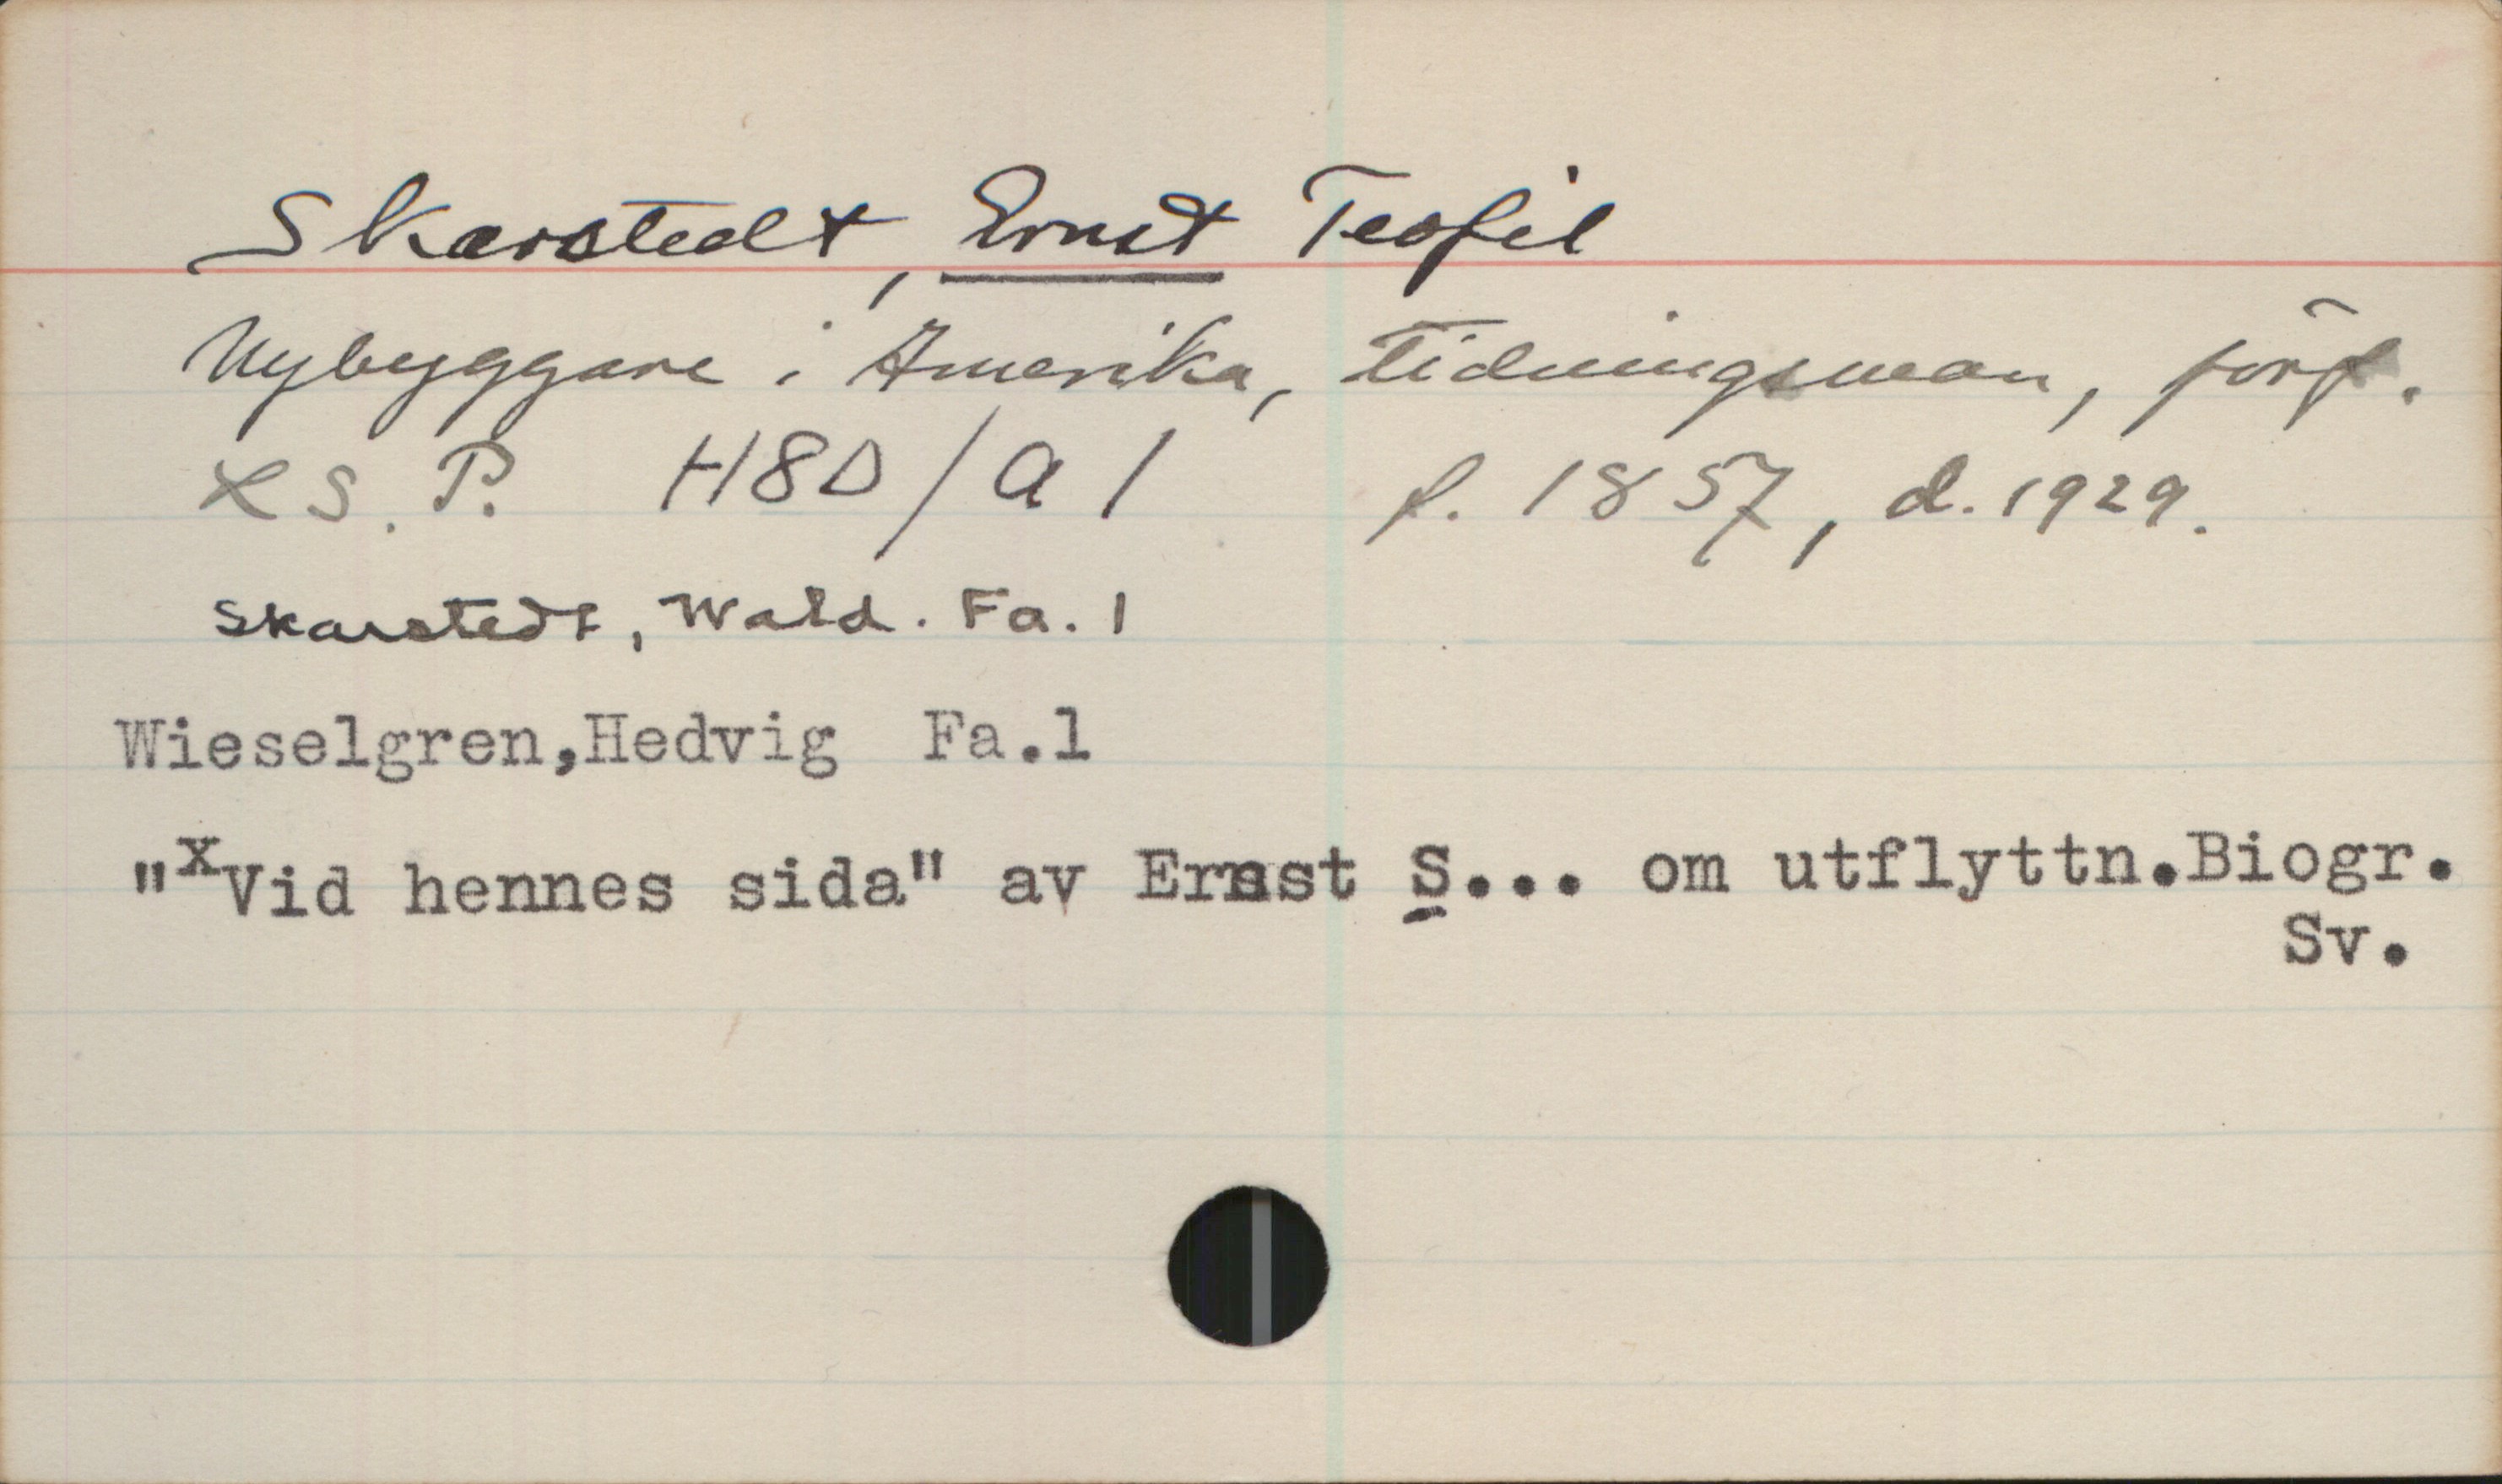 Skarstedt, Ernst Teofil
Nybyggare i Amerika, tidningsman, förf.
x S. P. H8D/a 1 f. 1857, d. 1929.
Skarstedt, Wald. Fa. 1
Wieselgren,Hedvig Fa.1
"xVid hennes sida" av Ernst S... om utflyttn.Biogr.
Sv.